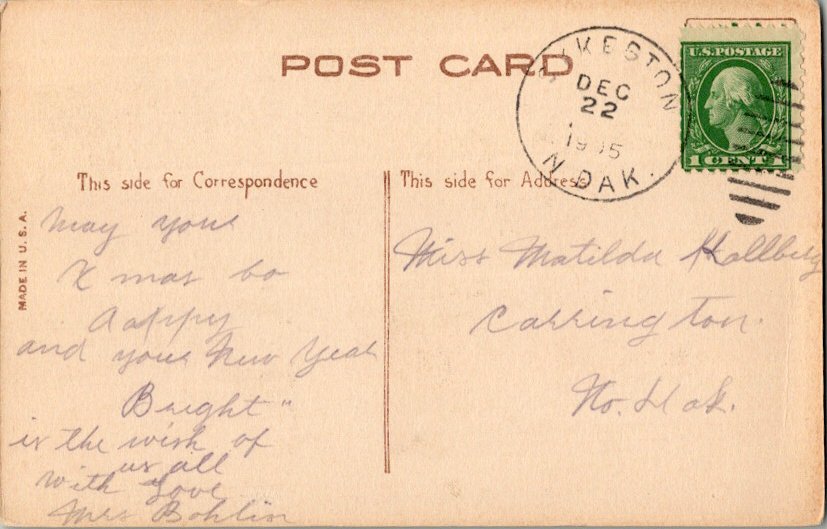 POST CARD
SYKESTON
DEC
22
N. DAK.
U.S. POSTAGE
1 CENT 1
This side for Correspondence
This side for Address
MADE IN U.S.A.
May your
Xmas be
Happy
and your New Year
Bright"
is the wish of
us all
with Love
Mrs Bohlin
Miss Matilda Hallberg
Carrington.
No. Dak.